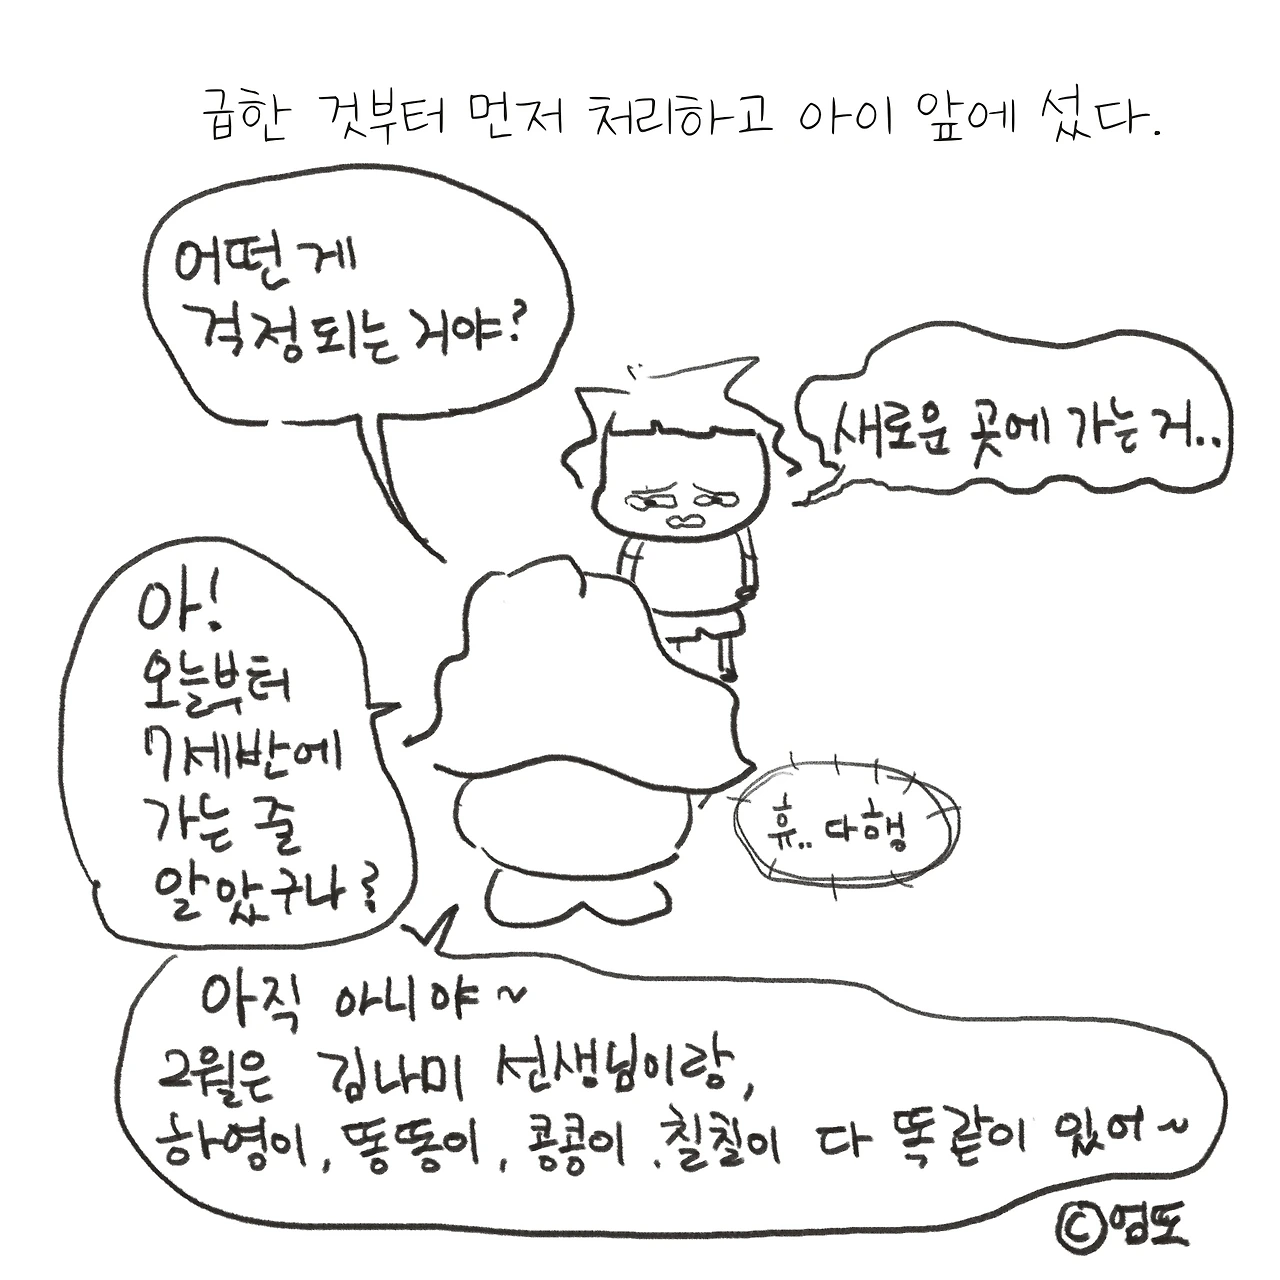 급한 것부터 먼저 처리하고 아이 앞에 섰다.
어떤게
걱정되는 거야?
새로운 곳에 가는거..
아!
오늘부터
7세반에
가는 줄
알았구나?
휴.. 다행
아직 아니야~
2월은 김나미 선생님이랑,
하영이, 똥똥이, 콩콩이, 칠칠이 다 똑같이 있어~
©엄또